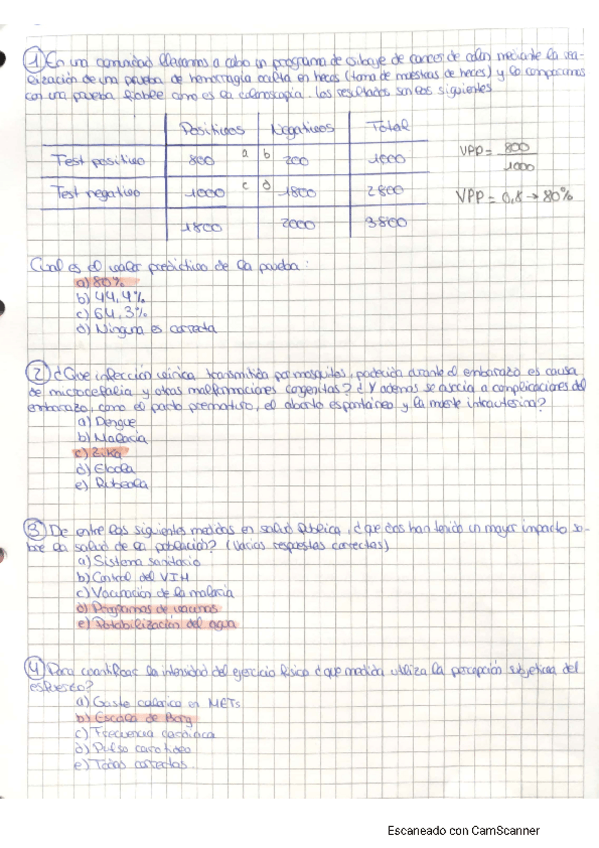 1) En una comunidad llevamos a cabo un programa de cribaje de cancer de colon mediante la rea-
lización de una prueba de hemorragia oculta en heces (toma de muestras de heces) y lo comparamos
con una prueba fiable como es la colonoscopia. Los resultados son los siguientes
Positivos Negativos Total
Test positivo 800 a b 200 1000
Test negativo 1000 c d 1800 2800
1800 2000 3800
VPP = 800
1000
VPP = 0,8 → 80%
Cual es el valor predictivo de la prueba:
a) 80%
b) 44,4%
c) 64,3%
d) Ninguna es correcta
2) ¿Que infección vírica transmitida por mosquitos, padecida durante el embarazo es causa
de microcefalia y otras malformaciones congenitas? ¿Y ademas se asocia a complicaciones del
embarazo, como el parto prematuro, el aborto espontáneo y la muerte intrauterina?
a) Dengue
b) Malaria
c) Zika
d) Ebola
e) Rubeola
3) De entre las siguientes medidas en salud Publica, ¿que dos han tenido un mayor impacto so-
bre la salud de la población? (Varias respuestas correctas)
a) Sistema sanitario
b) Control del VIH
c) Vacunación de la malaria
d) Programas de vacunas
e) Potabilización del agua
4) Para cuantificar la intensidad del ejercicio fisico ¿que medida utiliza la percepción subjetiva del
esfuerzo?
a) Gasto calorico en METs
b) Escala de Borg
c) Frecuencia cardiaca
d) Pulso carotideo
e) Todas correctas
Escaneado con CamScanner